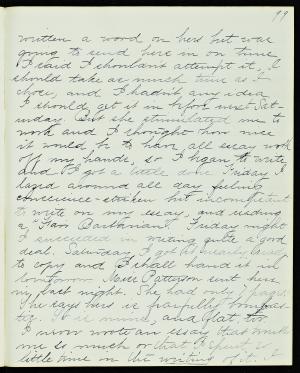 99
written a word on hers but was
going to send hers in on time
I said I shouldn't attempt it, I
should take as much time as I
chose, and I hadn't any idea
I should get it in before next Sat-
urday. But she stimulated me to
work and I thought how nice
it would be to have all essay work
off my hands, so I began to write
and I got a little done. Friday I
lazed around all day feeling
conscience-striken but incompetent
to write on my essay, and reading
a "Fair Barbarian." Friday night
I succeeded in writing quite a good
deal. Saturday I got it nearly
to copy and I shall hand it in
tomorrow. Miss Patterson sent hers
in last night. She had only 7 pages.
She says hers is fearfully bombas-
tic. is mine, and flat too.
I never wrote an essay that
me so much or that I spent so
little time on the writing of it. I